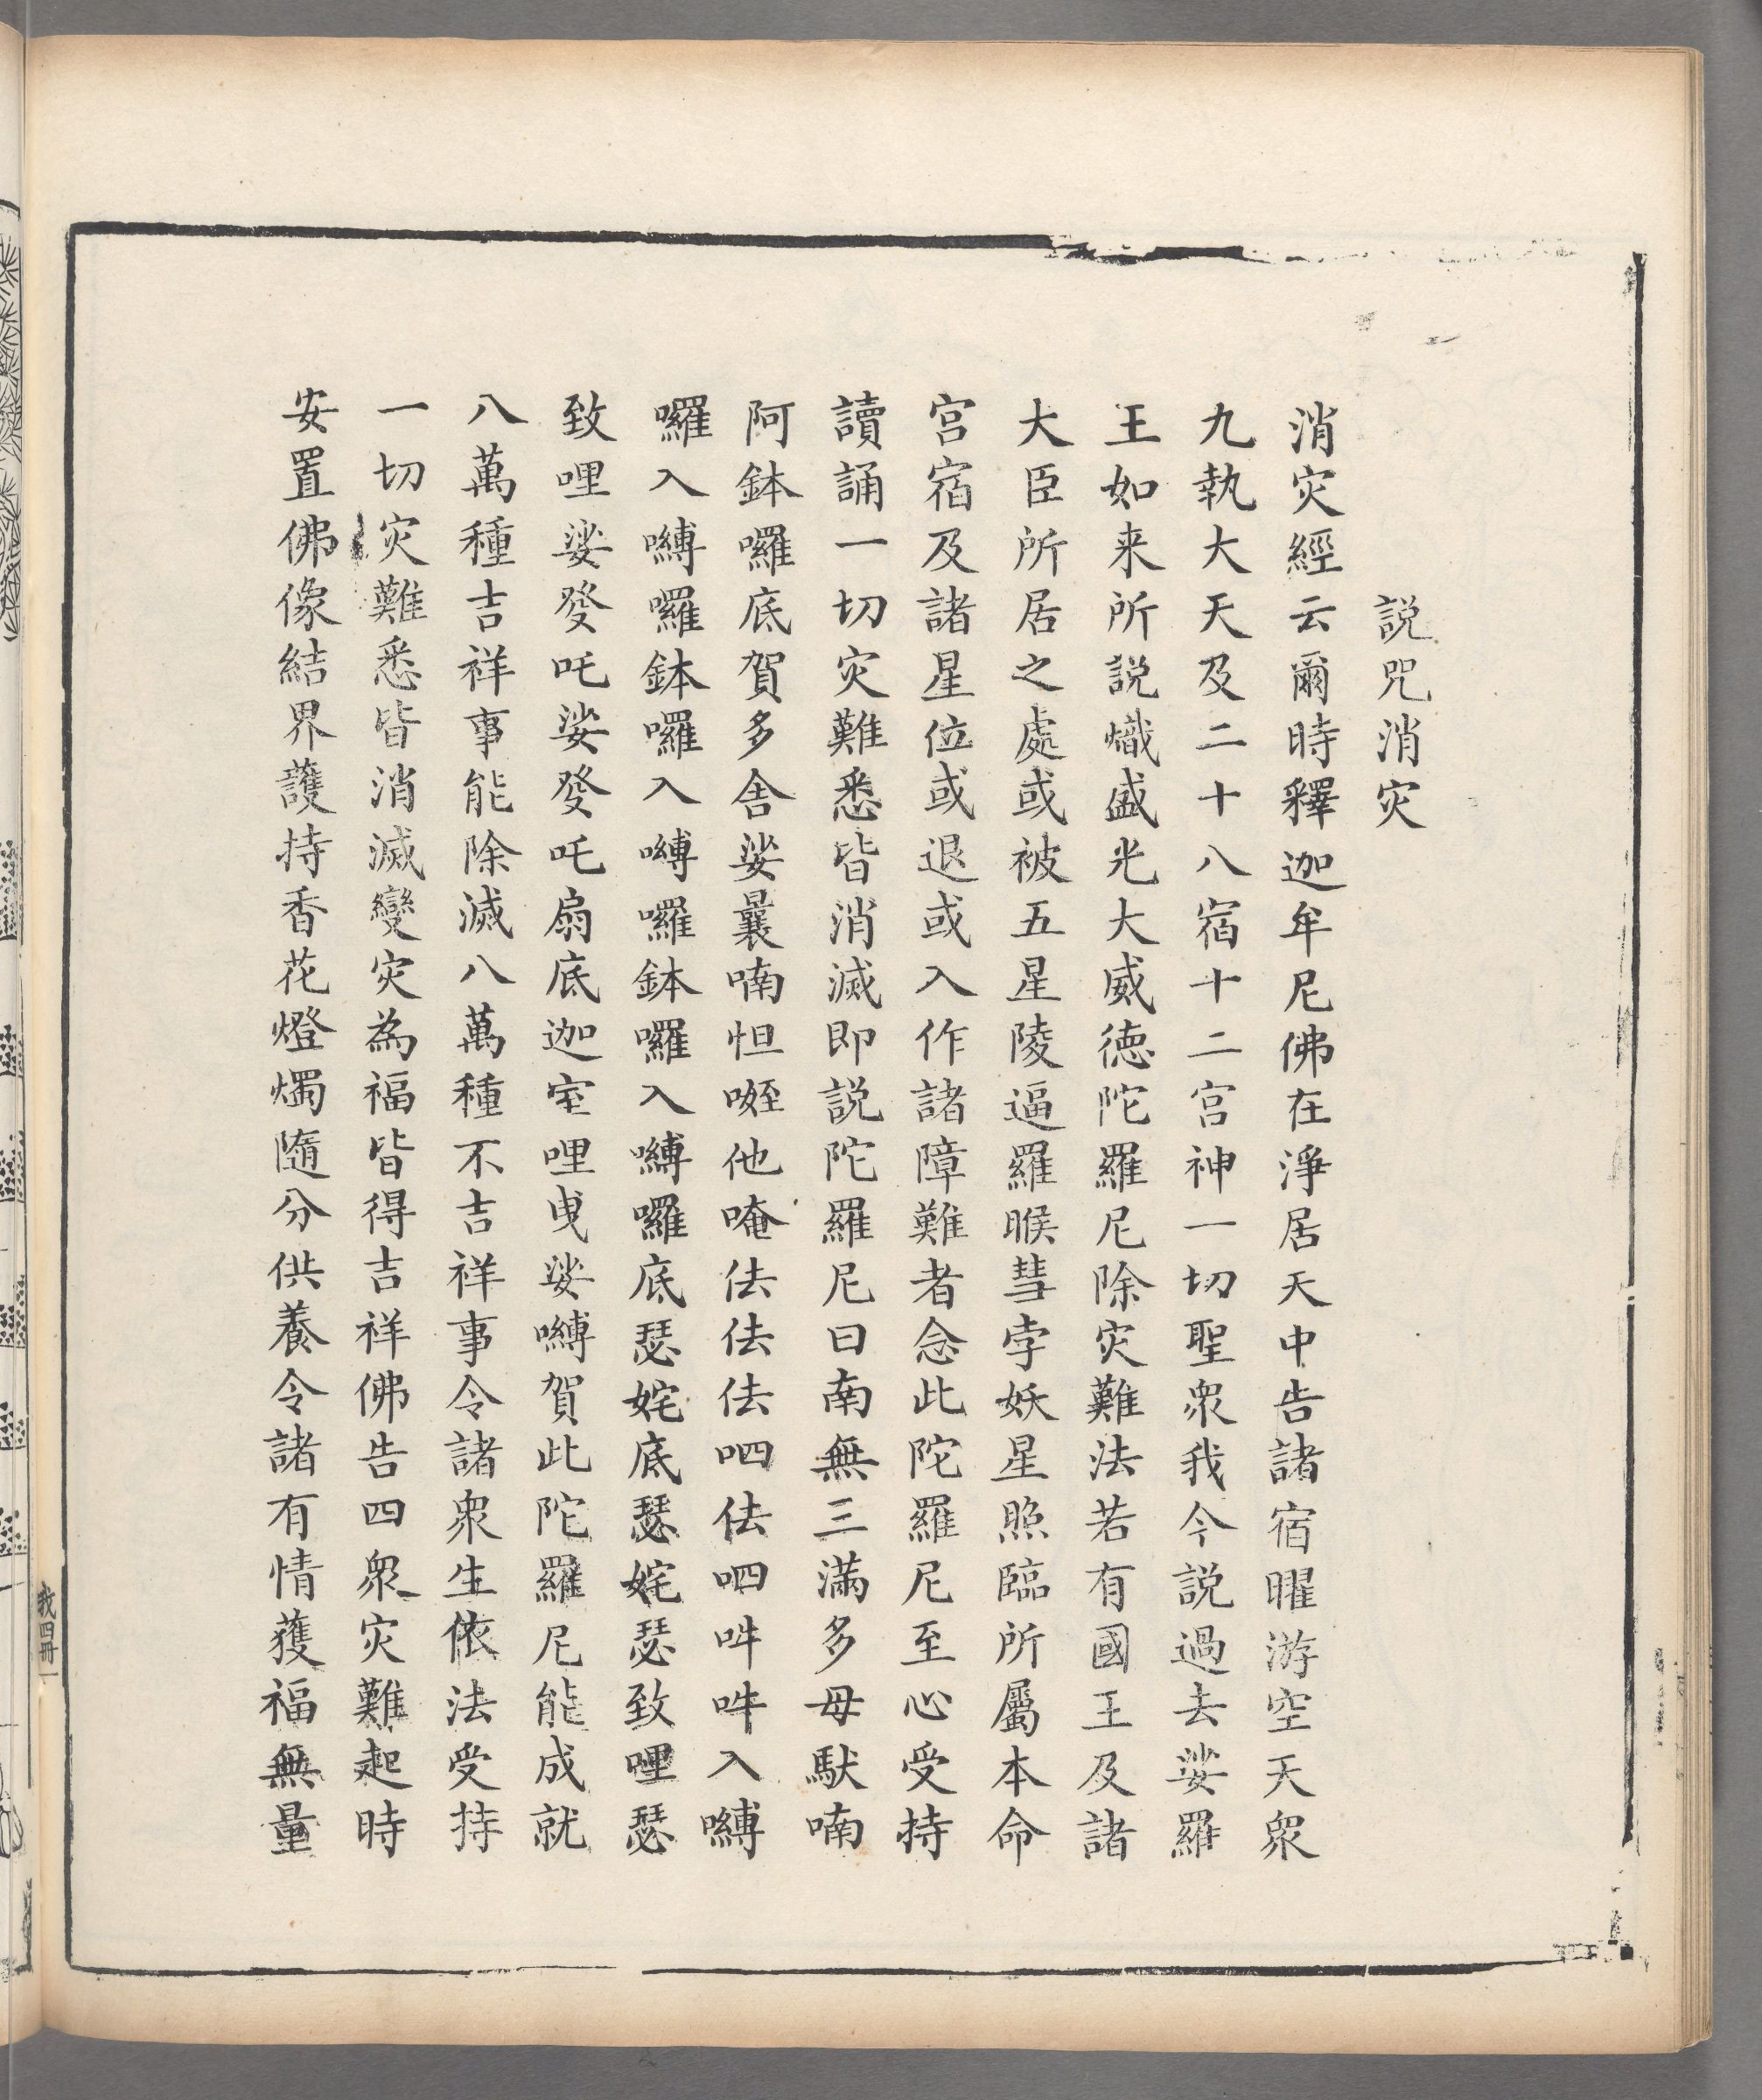 説咒消灾
消灾經云爾時釋迦牟尼佛在淨居天中告諸宿曜游空天衆
九執大天及二十八宿十二宮神一切聖衆我今説過去娑羅
王如来所説熾盛光大威徳陀羅尼除灾難法若有國王及諸
大臣所居之處或被五星陵逼羅睺彗孛妖星照臨所屬本命
宫宿及諸星位或退或入作諸障難者念此陀羅尼至心受持
讀誦一切灾難悉皆消滅即説陀羅尼曰南無三滿多母馱喃
阿鉢囉底賀多舎娑曩喃怛姪他唵佉佉佉呬佉呬吽吽入嚩
囉入嚩囉鉢囉入嚩囉鉢囉入嚩囉底瑟姹底瑟姹瑟致哩瑟
致哩娑發吒娑發吒扇底迦室哩曳娑嚩賀此陀羅尼能成就
八萬種吉祥事能除滅八萬種不吉祥事令諸衆生依法受持
一切灾難悉皆消滅變灾為福皆得吉祥佛告四衆灾難起時
安置佛像結界護持香花燈燭隨分供養令諸有情獲福無量
我四冊一